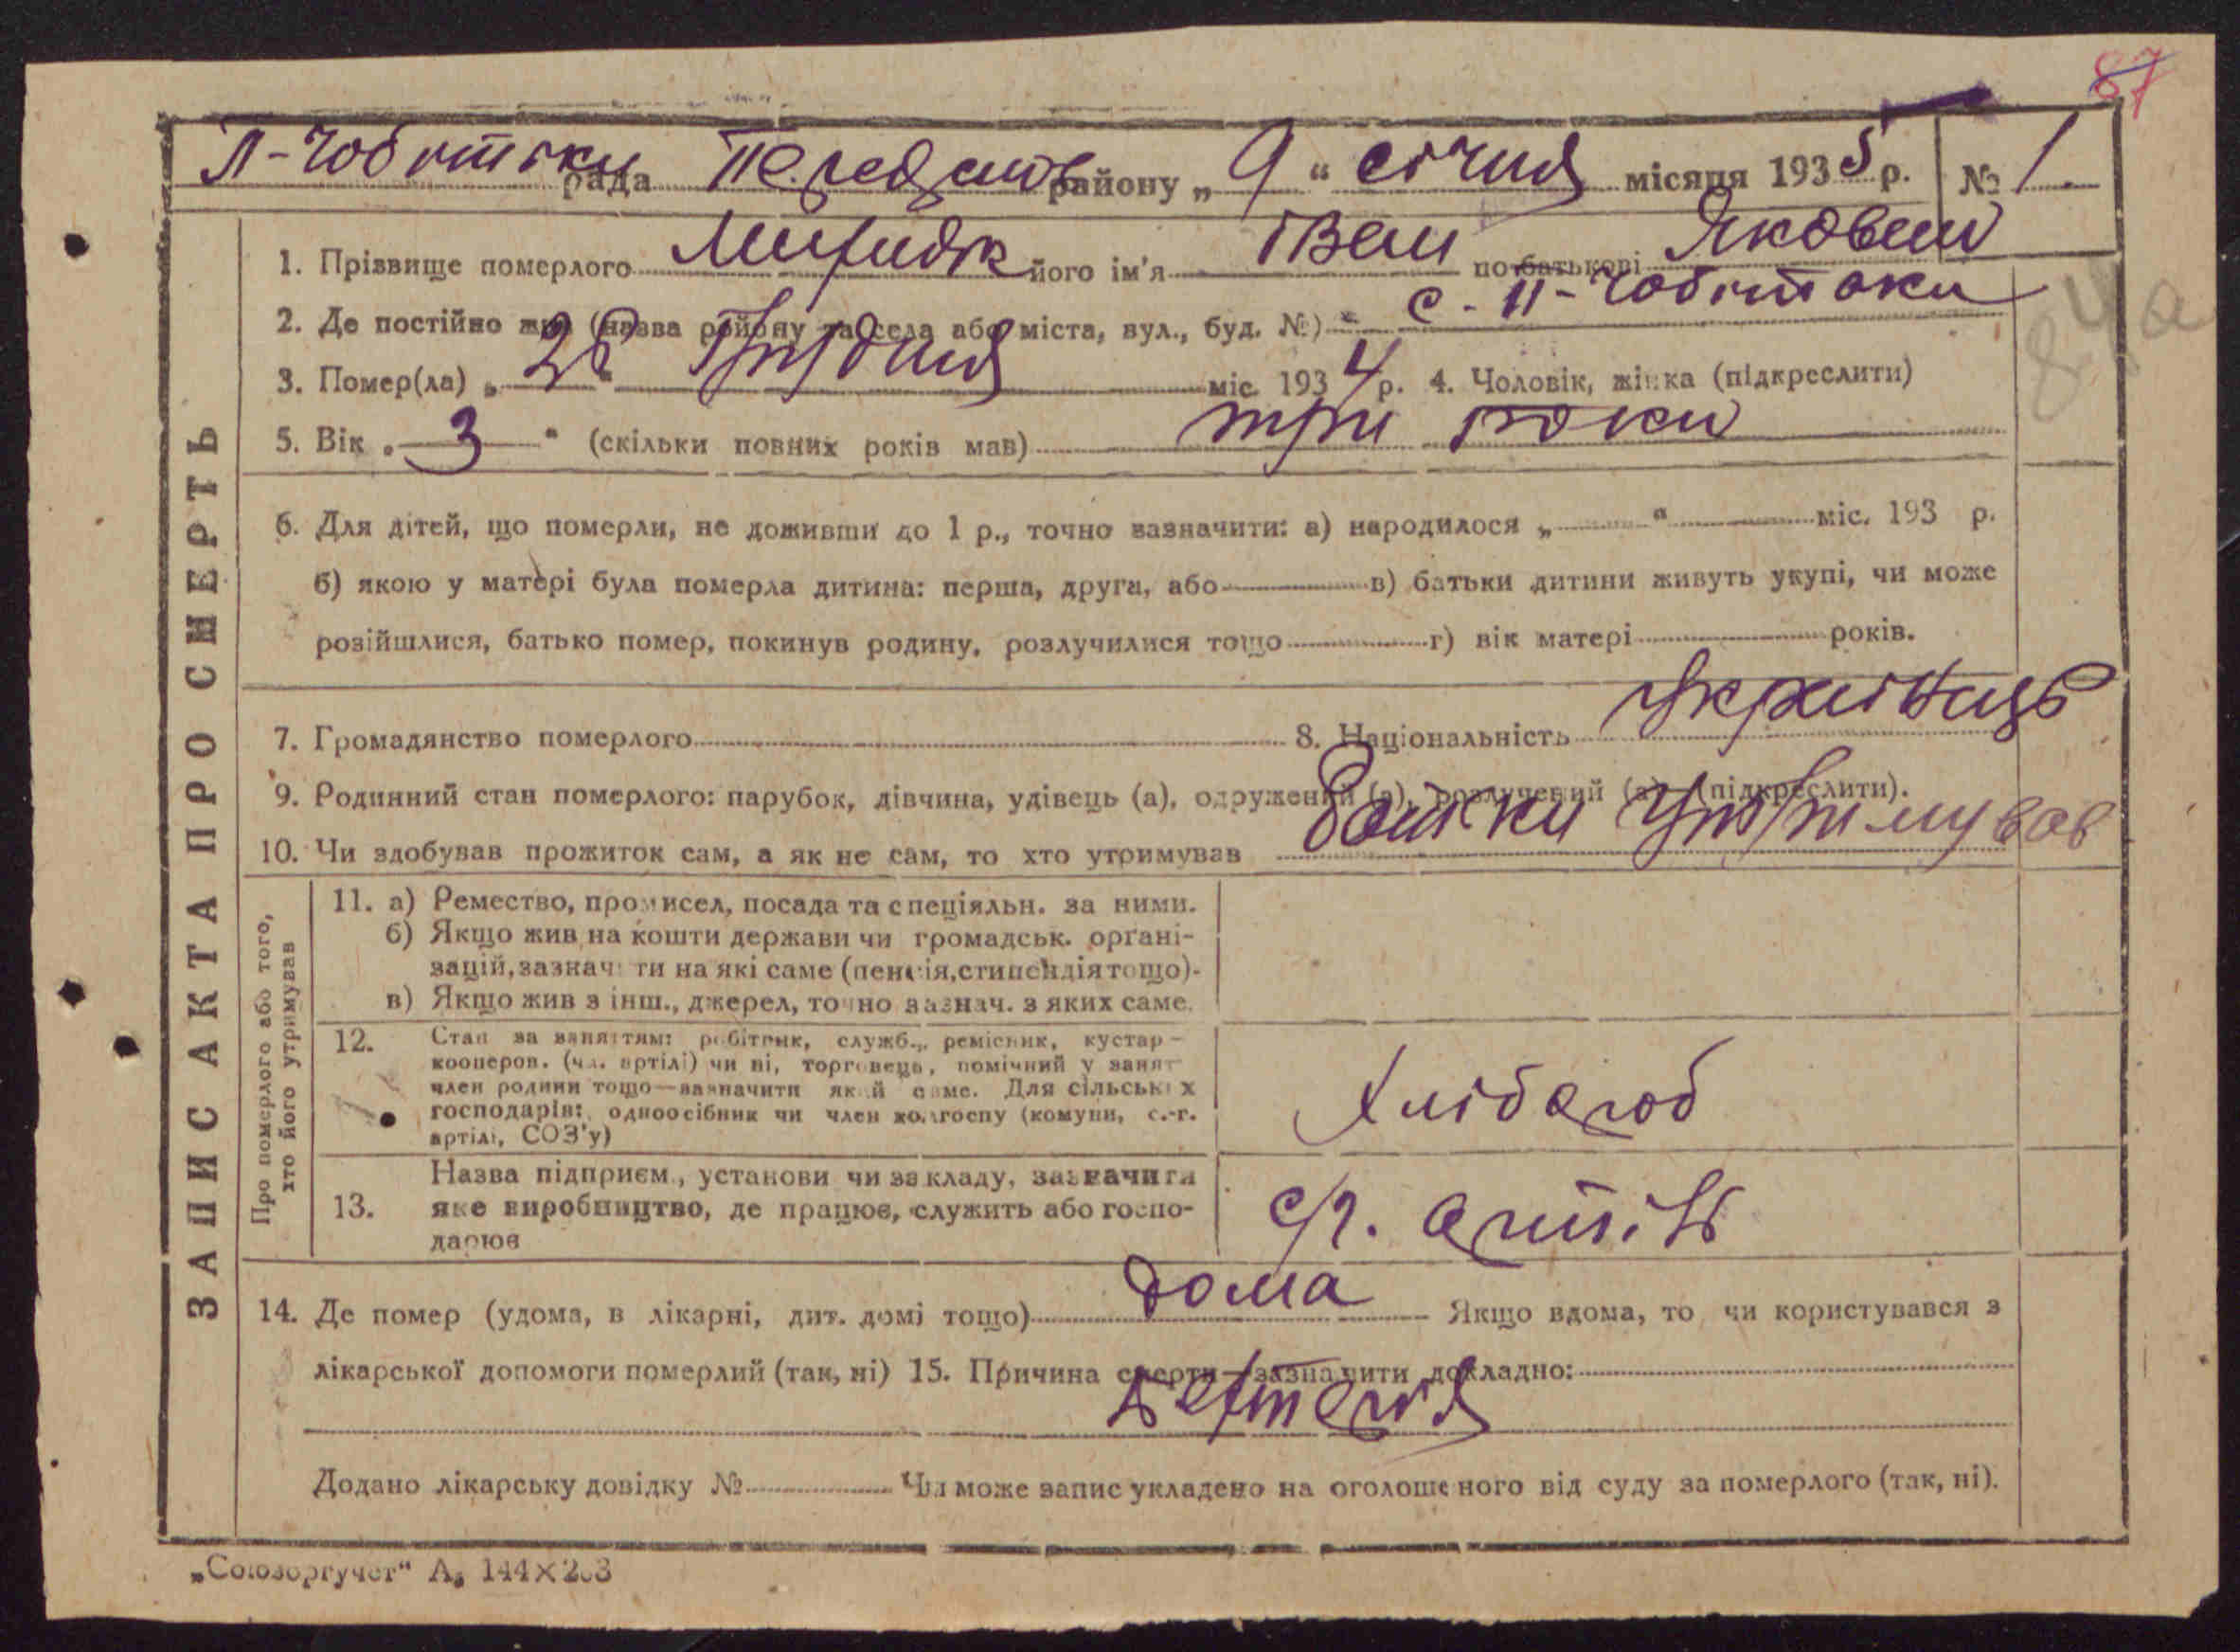 87
П-Чобітки рада район у „9“ січня місяця 1935 р. № 1.
84а
ЗАПИС АКТА ПРО СМЕРТЬ
1. Прізвище померлого його ім'я Іван по батькові
2. Де постійно жив (назва району та села або міста, вул., буд. №) с. П-Чобітки
3. Помер(ла) „28“ Грудня міс. 1934 р. 4. Чоловік, жінка (підкреслити)
5. Вік „3“ (скільки повних років мав) три роки
6. Для дітей, що померли, не доживши до 1 р., точно зазначити: а) народилося „ “ міс. 193 р.
б) якою у матері була померла дитина: перша, друга, або в) батьки дитини живуть укупі, чи може
розійшлися, батько помер, покинув родину, розлучилися тощо г) вік матері років.
7. Громадянство померлого 8. Національність Українець
9. Родинний стан померлого: парубок, дівчина, удівець (а), одружений (а), розлучений (а) (підкреслити).
10. Чи здобував прожиток сам, а як не сам, то хто утримував Батьки утримував
Про померлого або того,
хто його утримував
11. а) Ремество, промисел, посада та спеціяльн. за ними.
б) Якщо жив на кошти держави чи громадськ. органі-
зацій, зазначити на які саме (пенсія, стипендія тощо).
в) Якщо жив з інш., джерел, точно зазнач. з яких саме.
12. Стан за заняттям: робітник, служб., ремісник, кустар-
кооперов. (чл. артілі) чи ні, торговець, помічний у занят
член родини тощо—зазначити який саме. Для сільських
господарів: одноосібник чи член колгоспу (комуни, с.-г.
артілі, СОЗ'у)
Хлібороб
13. Назва підприєм., установи чи закладу, зазначити
яке виробництво, де працює, служить або госпо-
дарює
с/г. артіль
14. Де помер (удома, в лікарні, дит. домі тощо) дома Якщо вдома, то чи користувався з
лікарської допомоги померлий (так, ні) 15. Причина смерти—зазначити докладно:
Дефтерія
Додано лікарську довідку № Чи може запис укладено на оголошеного від суду за померлого (так, ні).
„Союзоргучет“ А₅ 144×203